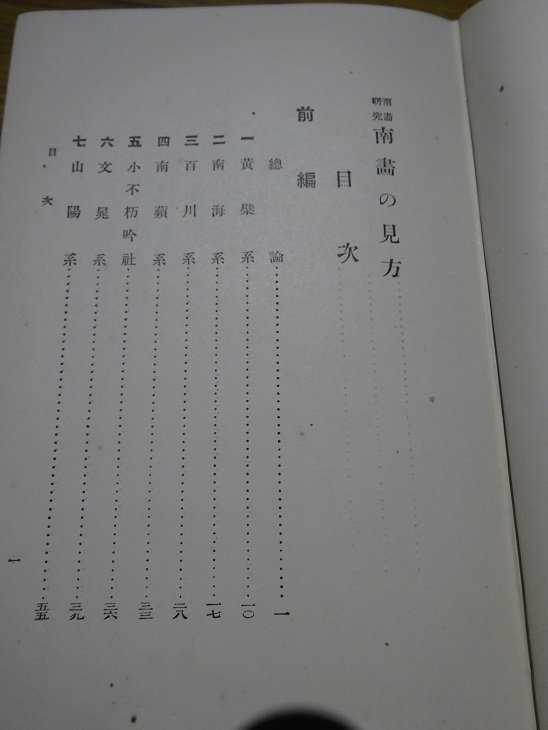 南畫
研究
南畫の見方
目次
前編
總論…………一
一 黄檗系…………一〇
二 南海系…………一七
三 百川系…………二八
四 南蘋系…………三三
五 小不朽吟社…………三六
六 文晁系…………三九
七 山陽系…………五五
目・次
一